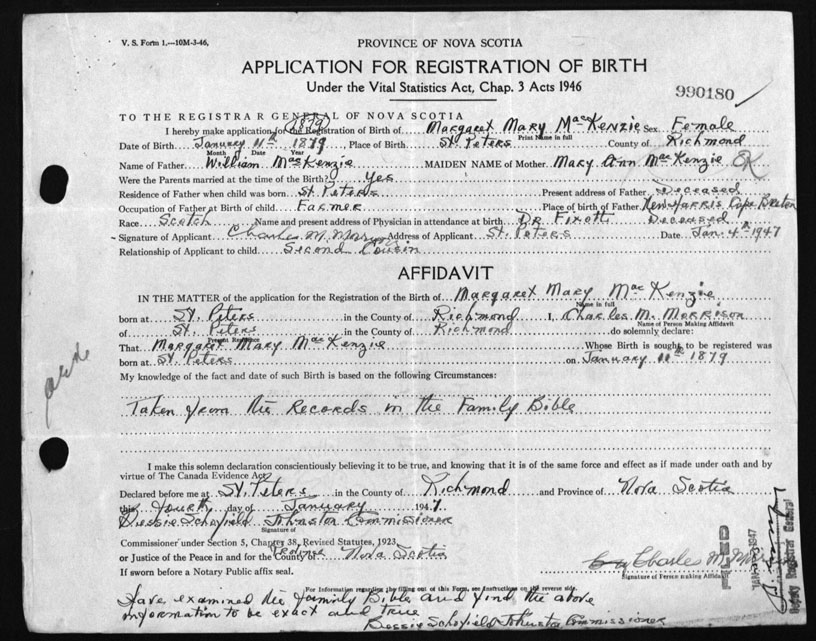 V. S. Form 1.—10M-3-46.
PROVINCE OF NOVA SCOTIA
APPLICATION FOR REGISTRATION OF BIRTH
Under the Vital Statistics Act, Chap. 3 Acts 1946
990180
TO THE REGISTRAR GENERAL OF NOVA SCOTIA
1879
I hereby make application for the Registration of Birth of Margaret Mary MacKenzie Sex Female
Print Name in full
Date of Birth January 11th 1879, Place of Birth St. Peters County of Richmond
Month of Date Year
Name of Father William MacKenzie MAIDEN NAME of Mother Mary Ann MacKenzie OK
Were the Parents married at the time of the Birth? Yes
Residence of Father when child was born St. Peters Present address of Father Deceased
Occupation of Father at Birth of child Farmer Place of birth of Father New Harris Cape Breton
Race Scotch Name and present address of Physician in attendance at birth Dr. Fixott Deceased
Signature of Applicant Charles M. Morrison Address of Applicant St. Peters Date Jan. 4th 1947
Relationship of Applicant to child Second Cousin
AFFIDAVIT
IN THE MATTER of the application for the Registration of the Birth of Margaret Mary MacKenzie
Name in full
born at St. Peters in the County of Richmond I, Charles M. Morrison
Name of Person Making Affidavit
of St. Peters in the County of Richmond do solemnly declare:
Present Residence
That Margaret Mary MacKenzie Whose Birth is sought to be registered was
born at St. Peters on January 11th 1879
My knowledge of the fact and date of such Birth is based on the following Circumstances:
Taken from the Records in the Family Bible
I make this solemn declaration conscientiously believing it to be true, and knowing that it is of the same force and effect as if made under oath and by
virtue of The Canada Evidence Act.
Declared before me at St. Peters in the County of Richmond and Province of Nova Scotia
this Fourth day of January 1947.
Bessie Schofield Johnston Commissioner
Signature of
Commissioner under Section 5, Chapter 38, Revised Statutes, 1923,
or Justice of the Peace in and for the County of Province Nova Scotia
If sworn before a Notary Public affix seal.
Charles M.
Signature of Person Making Affidavit
For Information regarding the filling out of this Form, see Instructions on the reverse side.
Have examined the Family Bible and find the above
information to be exact and true
Bessie Schofield Johnston Commissioner
FILED
1947
Deputy Registrar General